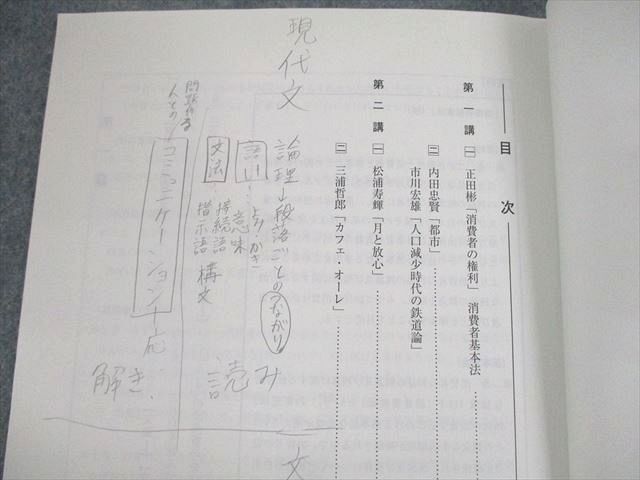 目次
第一講 ㈠ 正田彬「消費者の権利」 消費者基本法
㈡ 内田忠賢「都市」
市川宏雄「人口減少時代の鉄道論」
第二講 ㈠ 松浦寿輝「月と放心」
㈡ 三浦哲郎「カフェ・オーレ」
現代文
論理→段落ごとのつながり
語い…よみ・かき
意味
文法…接続語
指示語 構文
読み
問題作る
人との
コミュニケーション→応
解き
文